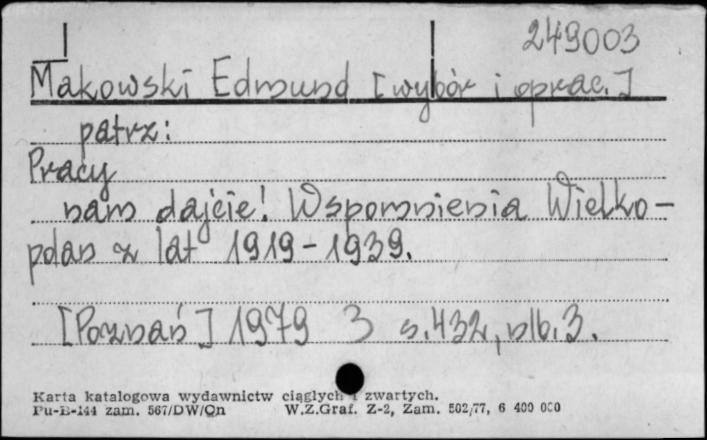 249003
Makowski Edmund [wybór i oprac.]
patrz:
Pracy
nam dajcie! Wspomnienia Wielko-
polan z lat 1919-1939.
[Poznań] 1979 3 s. 432, nlb. 3.
Karta katalogowa wydawnictw ciągłych i zwartych.
Pu-B-144 zam. 567/DW/Qn W.Z.Graf. Z-2, Zam. 502/77, 6 400 000